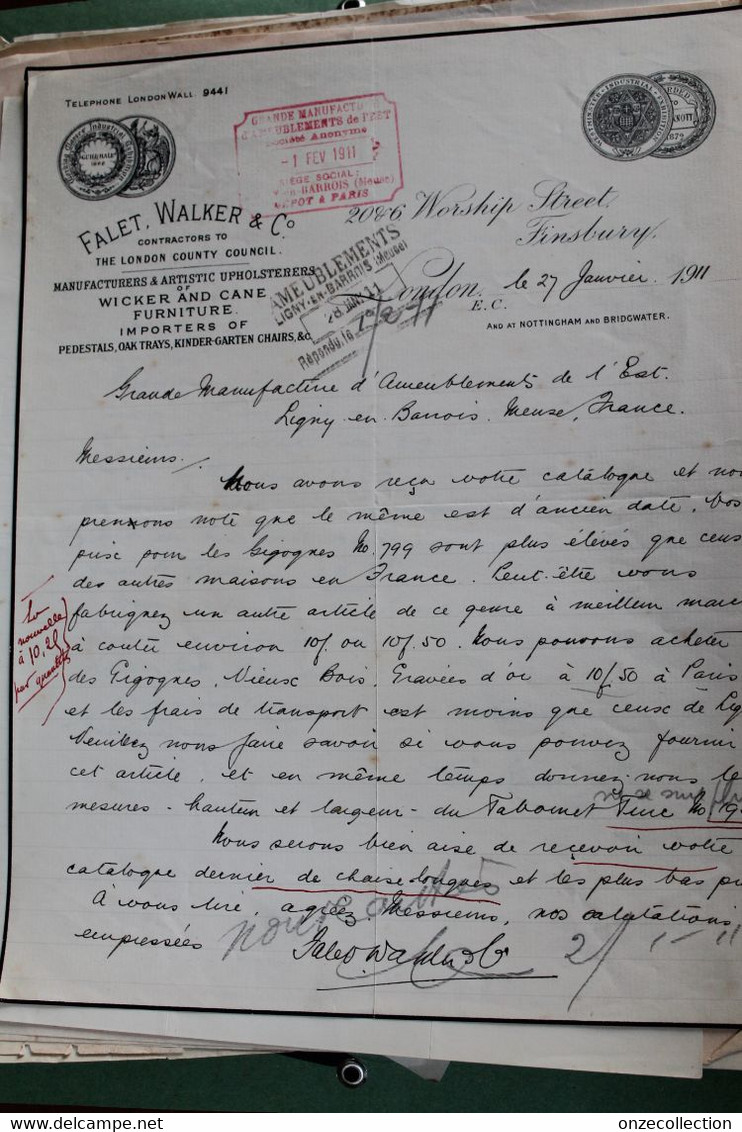 TELEPHONE LONDON WALL 9441
GRANDE MANUFACTURE
d'AMEUBLEMENTS de l'EST
Société Anonyme
-1 FEV 1911
SIÈGE SOCIAL:
BARROIS (Meuse)
DEPOT à PARIS
WESTMINSTER INDUSTRIAL EXHIBITION
1879
FALET, WALKER & Co
CONTRACTORS TO
THE LONDON COUNTY COUNCIL.
MANUFACTURERS & ARTISTIC UPHOLSTERERS
OF
WICKER AND CANE
FURNITURE.
IMPORTERS OF
PEDESTALS, OAK TRAYS, KINDER-GARTEN CHAIRS, &c
AMEUBLEMENTS
LIGNY-EN-BARROIS (Meuse)
28 JANV. 11
Répondu le
20&6 Worship Street,
Finsbury,
London, le 27 Janvier 1911
E.C.
AND AT NOTTINGHAM AND BRIDGWATER.
Grande Manufacture d'Ameublements de l'Est.
Ligny en Barrois. Meuse, France.
Messieurs.
Nous avons reçu votre catalogue et nou
prenons note que le même est d'ancien date. Vos
prix pour les Gigognes No. 799 sont plus élévés que ceux
des autres maisons en France. Peut-être vous
fabriquez un autre article de ce genre à meilleur marc
à coutée environ 10f. ou 10f.50. Nous pouvons acheter
des Gigognes, Vieux Bois, Gravées d'or à 10f.50 à Paris
et les frais de transport est moins que ceux de Lig
Veuillez nous faire savoir si vous pouvez fournir
cet article, et en même temps donnez-nous le
mesures - hauteur et largeur - du Tabouret Turc No 19
Nous serons bien aise de reçevoir votre
catalogue dernier de chaise longues et les plus bas p
À vous lire, agréez, Messieurs, nos salutations
empressées
Falet Walker & Co
nouvelle
à 10,25
par quantité